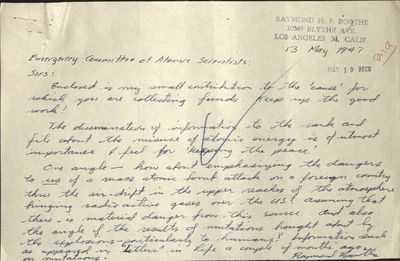 RAYMOND H. F. BOOTHE
10549 BLYTHE AVE.
LOS ANGELES 34, CALIF.
13 May 1947
MAY 19 RECD
Emergency Committee of Atomic Scientists:
Sirs:
Enclosed is my small contribution to the 'cause' for
which you are collecting funds. Keep up the good
work!
The dissemination of information to the rank and
file about the misuse of atomic energy is of utmost
importance I feel for 'keeping the peace'.
One angle - how about emphasizing the dangers
to us of a mass atomic bomb attack on a foreign country
thru the air-drift in the upper reaches of the atmosphere
bringing radio active gases over the US? Assuming that
there is material danger from this source. And also
the angle of the results of mutations brought about by
the explosions - particularly to humans? Information such
as appeared in 'letters' in Life a couple of months ago
on mutations.
Raymond Boothe